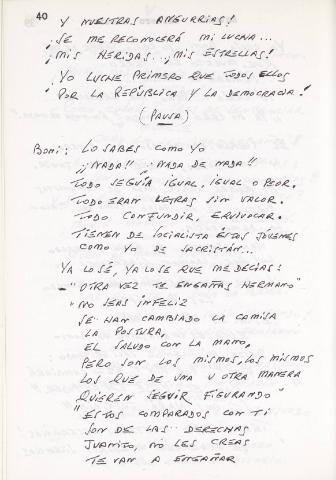 40
Y NUESTRAS ANGURRIAS!
¡SE ME RECONOCERÁ MI LUCHA...
¡MIS HERIDAS... ¡MIS ESTRELLAS!
¡YO LUCHE PRIMERO QUE TODOS ELLOS
POR LA REPÚBLICA Y LA DEMOCRACIA!
(PAUSA)
BONI: LO SABES COMO YO
¡¡NADA!! ¡NADA DE NADA!!
TODO SEGUÍA IGUAL, IGUAL O PEOR.
TODO ERAN LETRAS SIN VALOR.
TODO CONFUNDIR, EQUIVOCAR.
TIENEN DE SOCIALISTA ESTOS JÓVENES
COMO YO DE SACRISTÁN...
YA LO SÉ, YA LO SE QUE ME DECÍAS:
"OTRA VEZ TE ENGAÑAS HERMANO"
"NO SEAS INFELIZ
SE HAN CAMBIADO LA CAMISA
LA POSTURA,
EL SALUDO CON LA MANO,
PERO SON LOS MISMOS, LOS MISMOS
LOS QUE DE UNA U OTRA MANERA
QUIEREN SEGUIR FIGURANDO"
"ESTOS COMPARADOS CON TI
SON DE LAS DERECHAS
JUANITO, NO LES CREAS
TE VAN A ENGAÑAR